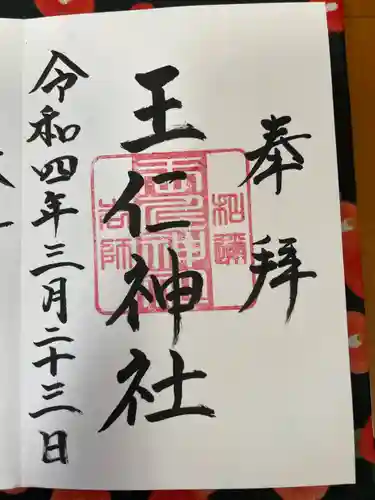 奉拝
王仁神社
令和四年三月二十三日